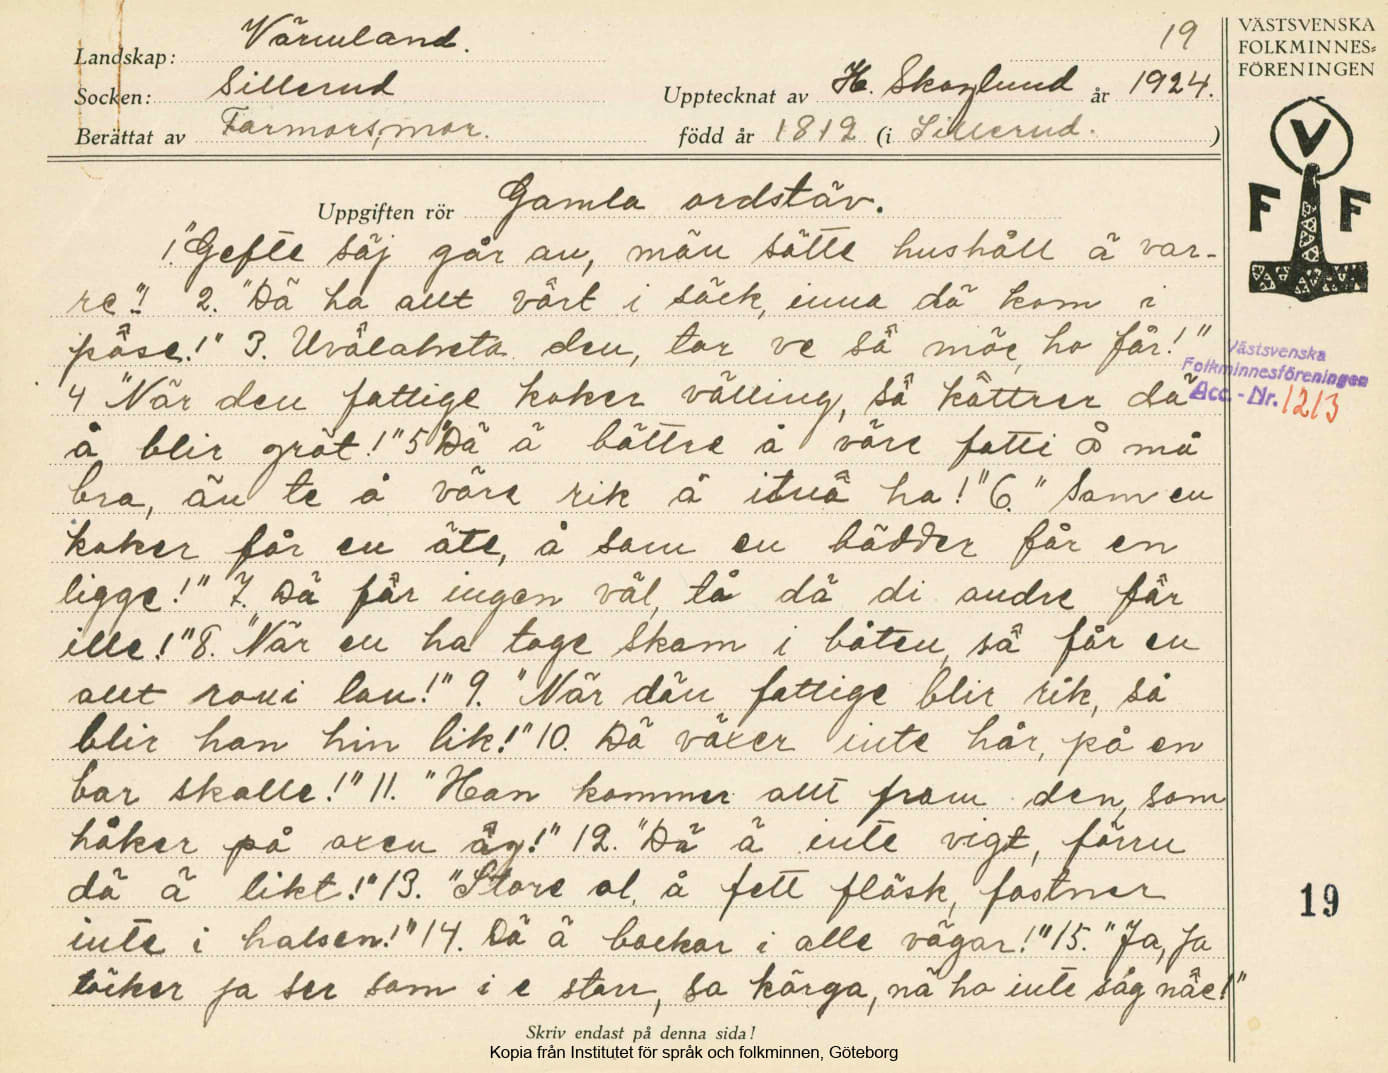 Landskap: Värmland. 19
Socken: Sillerud Upptecknat av H. Skoglund år 1924.
Berättat av Farmorsmor. född år 1812 (i Sillerud. )
VÄSTSVENSKA
FOLKMINNES=
FÖRENINGEN
V
F F
Uppgiften rör Gamla ordstäv.
1. "Gefte säj går an, män sätte hushåll ä var-
re"! 2. "Dä ha allt vårt i säck, inna dä kom i
påse!" 3. den, tar ve så möe, ho får!"
4 "När den fattige koker välling, så kåttrer dä
å blir gröt!" 5 "Dä ä bättre å våre fatti å må
bra, än te å våre rik å ha!" 6. "Som en
koker får en äte, å som en bädder får en
ligge!" 7. Dä får ingen väl, tå dä di andre får
ille!" 8. "När en ha tage Skam i båten, så får en
allt ro'n i lan!" 9. "När dän fattige blir rik, så
blir han hin lik!" 10. Dä växer inte hår, på en
bar skalle!" 11. "Han kommer allt fram den, som
håker på oxen åg!" 12. "Dä ä inte vigt, förrn
dä ä likt!" 13. "Store ol, å fett fläsk, fastner
inte i halsen!" 14. Dä ä backar i alle vägar!" 15. "Ja, ja
töcker ja ser som i e starr, sa kärga, nä ho inte såg nåe!"
Västsvenska
Folkminnesföreningen
Acc.-Nr. 1213
19
Skriv endast på denna sida!
Kopia från Institutet för språk och folkminnen, Göteborg